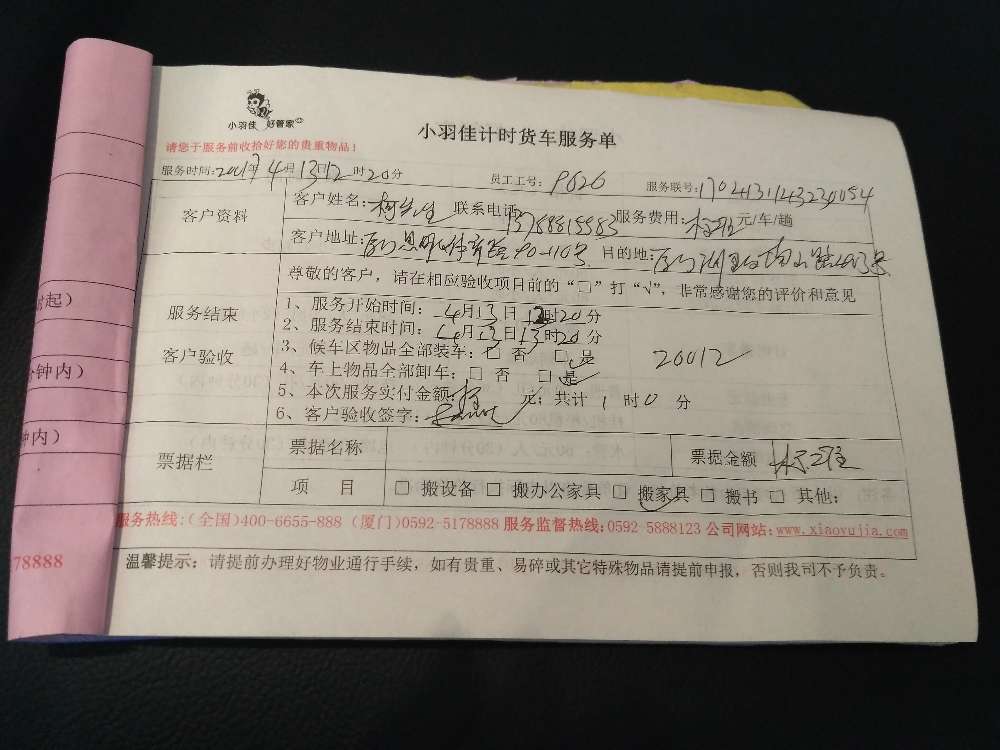 小羽佳 好管家
小羽佳计时货车服务单
请您于服务前收拾好您的贵重物品！
服务时间：2017年4月13日12时20分 员工工号：9626 服务联号：
客户资料 客户姓名：柯先生 联系电话：13788815583 服务费用： 元/车/趟
客户地址： 目的地：
尊敬的客户，请在相应验收项目前的“□”打“√”，非常感谢您的评价和意见
服务结束
客户验收
1、服务开始时间：4月13日12时20分
2、服务结束时间：4月13日13时20分
3、候车区物品全部装车：□ 否 □ 是
20012
4、车上物品全部卸车：□ 否 □ 是
5、本次服务实付金额： 元；共计 1 时 0 分
6、客户验收签字：
票据栏 票据名称 票据金额
项 目 □ 搬设备 □ 搬办公家具 □ 搬家具 □ 搬书 □ 其他：
服务热线：（全国）400-6655-888（厦门）0592-5178888 服务监督热线：0592-5888123 公司网站：www.xiaoyujia.com
温馨提示：请提前办理好物业通行手续，如有贵重、易碎或其它特殊物品请提前申报，否则我司不予负责。
时起）
分钟内）
钟内）
78888